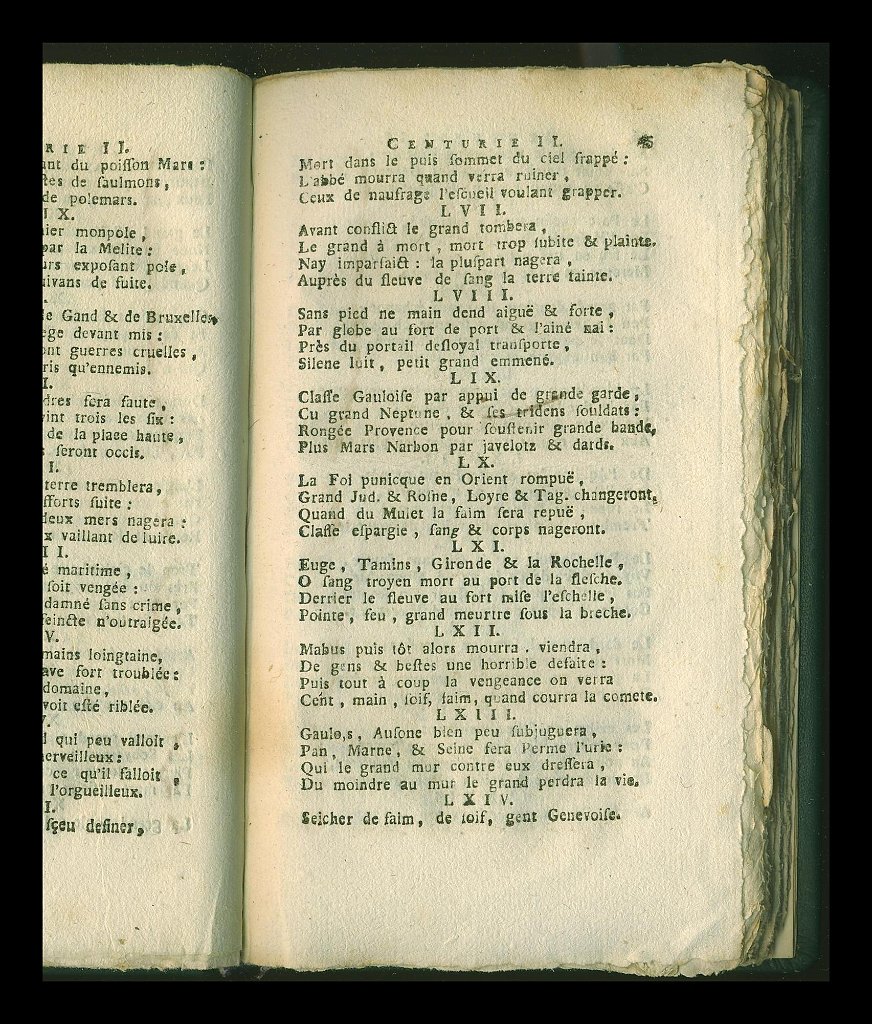 RIE II.
ant du poiſſon Mars :
tes de ſaulmons,
de polemars.
IX.
ier monpole,
par la Melite :
urs expoſant pole,
uivans de ſuite.
.
de Gand & de Bruxelles,
ege devant mis :
ont guerres cruelles,
ris qu'ennemis.
I.
dres ſera faute,
vint trois les ſix :
de la place haute,
ſeront occis.
I.
terre tremblera,
fforts ſuite :
deux mers nagera :
x vaillant de luire.
II.
é maritime,
ſoit vengée :
damné ſans crime,
feincte n'outraigée.
V.
mains loingtaine,
ave fort troublée :
domaine,
voit eſté riblée.
V.
l qui peu valloit,
erveilleux :
ce qu'il falloit,
l'orgueilleux.
I.
ſçeu definer,
CENTURIE II. 45
Mort dans le puis ſommet du ciel frappé :
L'abbé mourra quand verra ruiner,
Ceux de naufrage l'eſcueil voulant grapper.
LVII.
Avant conflict le grand tombera,
Le grand à mort, mort trop ſubite & plainte.
Nay imparfaict : la pluſpart nagera,
Auprès du fleuve de ſang la terre tainte.
LVIII.
Sans pied ne main dend aiguë & forte,
Par globe au fort de port & l'ainé nai :
Près du portail deſloyal tranſporte,
Silene luit, petit grand emmené.
LIX.
Claſſe Gauloiſe par appui de grande garde,
Cu grand Neptune, & ſes tridens ſouldats :
Rongée Provence pour ſouſtenir grande bande,
Plus Mars Narbon par javelotz & dards.
LX.
La Foi punicque en Orient rompuë,
Grand Jud. & Roſne, Loyre & Tag. changeront,
Quand du Mulet la faim ſera repuë,
Claſſe eſpargie, ſang & corps nageront.
LXI.
Euge, Tamins, Gironde & la Rochelle,
O ſang troyen mort au port de la fleſche.
Derrier le fleuve au fort miſe l'eſchelle,
Pointe, feu, grand meurtre ſous la breche.
LXII.
Mabus puis tôt alors mourra, viendra,
De gens & beſtes une horrible defaite :
Puis tout à coup la vengeance on verra
Cent, main, ſoif, faim, quand courra la comete.
LXIII.
Gaulo,s, Auſone bien peu ſubjuguera,
Pan, Marne, & Seine fera Perme l'urie :
Qui le grand mur contre eux dreſſera,
Du moindre au mur le grand perdra la vie.
LXIV.
Seicher de faim, de ſoif, gent Genevoiſe.